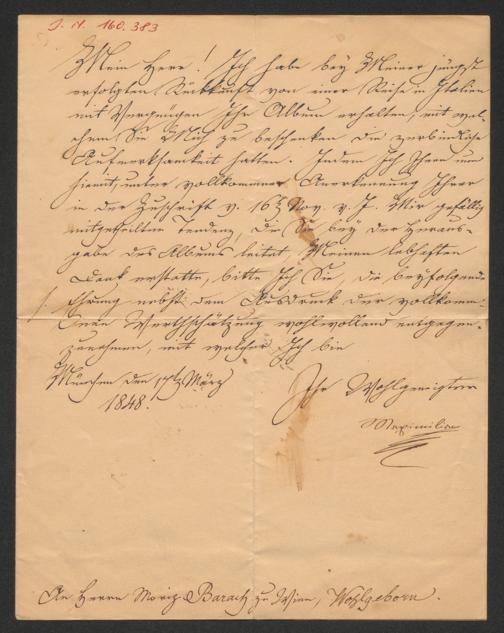 I. N. 160.383
Mein Herr! Ich habe bey Meiner jüngst
erfolgten Rückkunft von einer Reise in Italien
mit Vergnügen Ihr Album erhalten, mit wel-
chem Sie Mich zu beschenken die verbindliche
Aufmerksamkeit hatten. Indem Ich Ihnen nun
hiemit, unter vollkommener Anerkennung Ihrer
in der Zuschrift v. 16. Nov. v. J. Mir gefällig
mitgetheilten Tendenz, die Sie bey der Heraus-
gabe des Albums leitet, Meinen lebhaften
Dank erstatte, bitte Ich Sie, die beyfolgende
Ehrung nebst dem Ausdruck der vollkom-
menen Werthschätzung wohlwollend entgegen-
zunehmen, mit welcher Ich bin
München den März
1848.
Ihr Wohlgeneigter
Maximilian
An Herrn Moriz Barach zu Wien, Wohlgeborn.